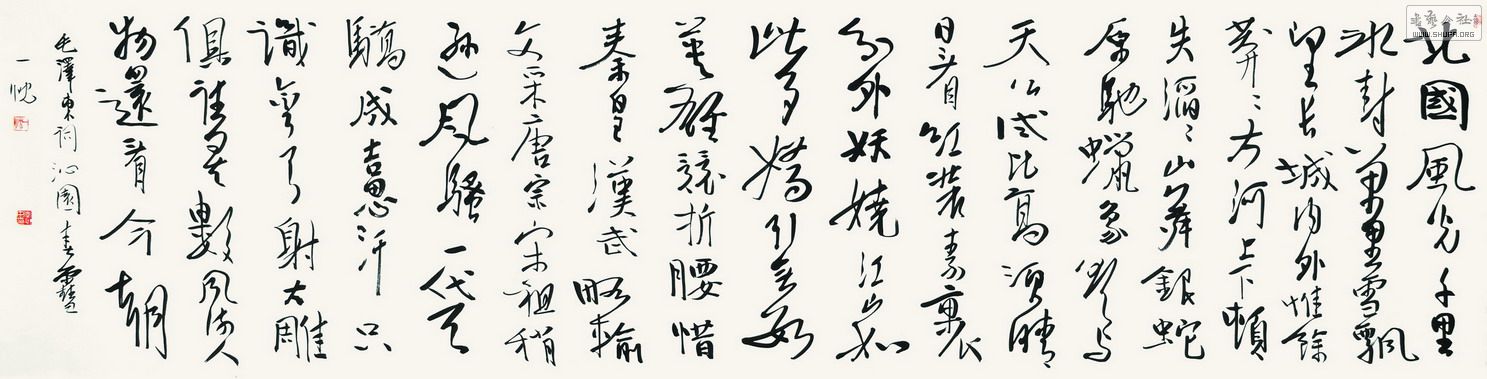 北國風光千里
冰封萬里雪飄
望長城內外惟餘
莽〻大河上下頓
失滔〻山舞銀蛇
原馳蠟象欲與
天公試比高須晴
日看紅裝素裹
分外妖嬈江山如
此多嬌引無數
英雄競折腰惜
秦皇漢武略輸
文采唐宗宋祖稍
遜風騷一代天
驕成吉思汗只
識彎弓射大雕
俱往矣數風流人
物還看今朝
毛澤東詞沁園春雪
一
WWW.SHUFA.ORG